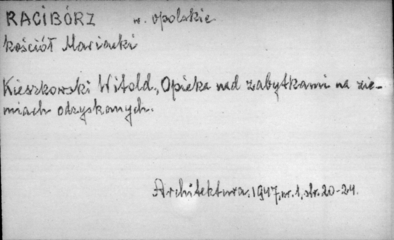 RACIBÓRZ w. opolskie
kościół Mariacki
Kieszkowski Witold, Opieka nad zabytkami na zie-
miach odzyskanych.
Architektura. 1947, nr. 1, str. 20-24.